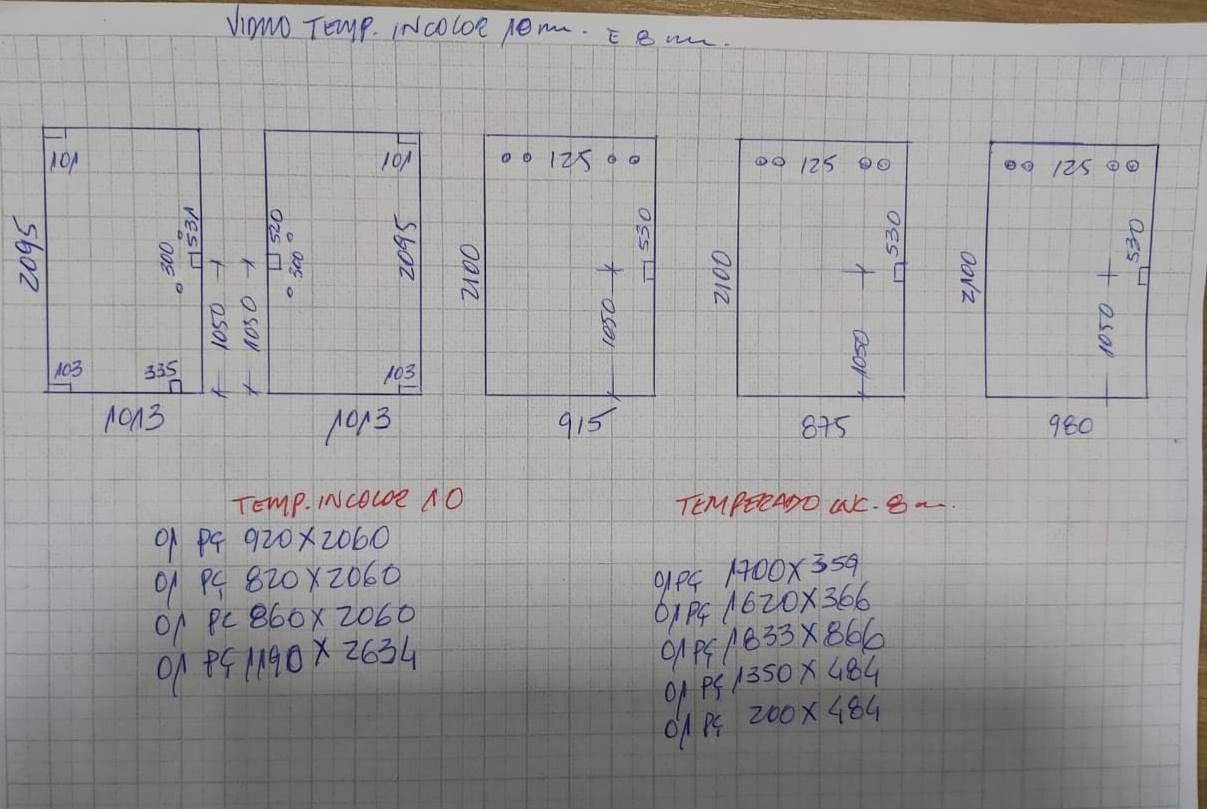 VIDRO TEMP. INCOLOR 10 mm. E 8 mm.
101
2095
531
300
1050
103
335
1013
101
520
300
2095
1050
103
1013
125
2100
530
1050
915
125
2100
530
1050
875
125
2100
530
1050
980
TEMP. INCOLOR 10
01 PÇ 920 X 2060
01 PÇ 820 X 2060
01 PC 860 X 2060
01 PÇ 1190 X 2634
TEMPERADO INC. 8 m.
01 PÇ 1700 X 359
01 PÇ 1620 X 366
01 PÇ 1833 X 866
01 PÇ 1350 X 484
01 PÇ 200 X 484